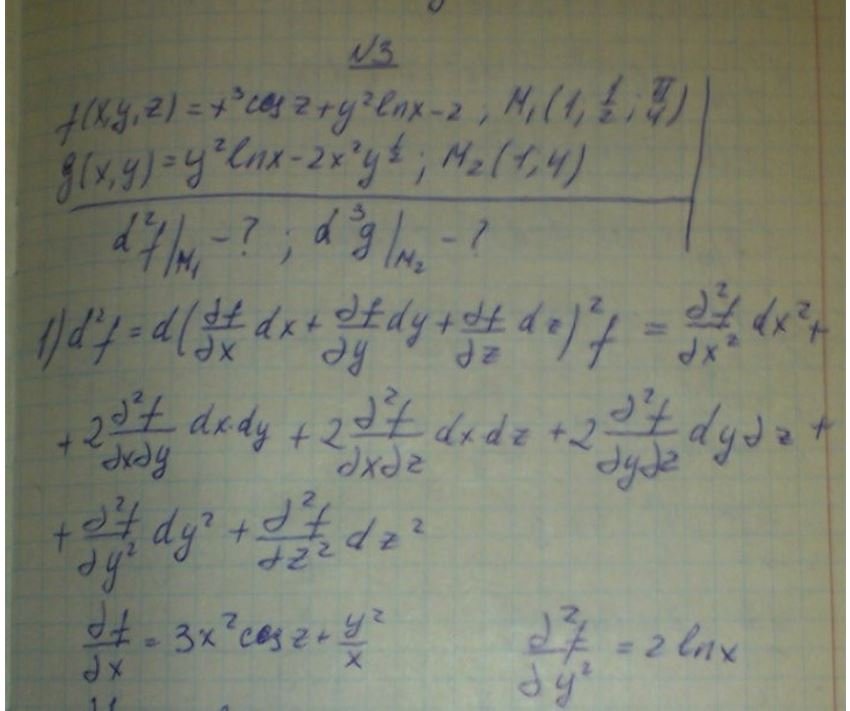 N3
f(x,y,z) = x³cos z + y² ln x - 2 ; M₁(1, 1/2 ; π/4)
g(x,y) = y² ln x - 2x² y^(1/2) ; M₂(1,4)
d²f|M₁ - ? ; d³g|M₂ - ?
1) d²f = d(∂f/∂x dx + ∂f/∂y dy + ∂f/∂z dz)² f = ∂²f/∂x² dx² +
+ 2 ∂²f/∂x∂y dx·dy + 2 ∂²f/∂x∂z dx·dz + 2 ∂²f/∂y∂z dy∂z +
+ ∂²f/∂y² dy² + ∂²f/∂z² dz²
∂f/∂x = 3x² cos z + y²/x ∂²f/∂y² = 2 ln x